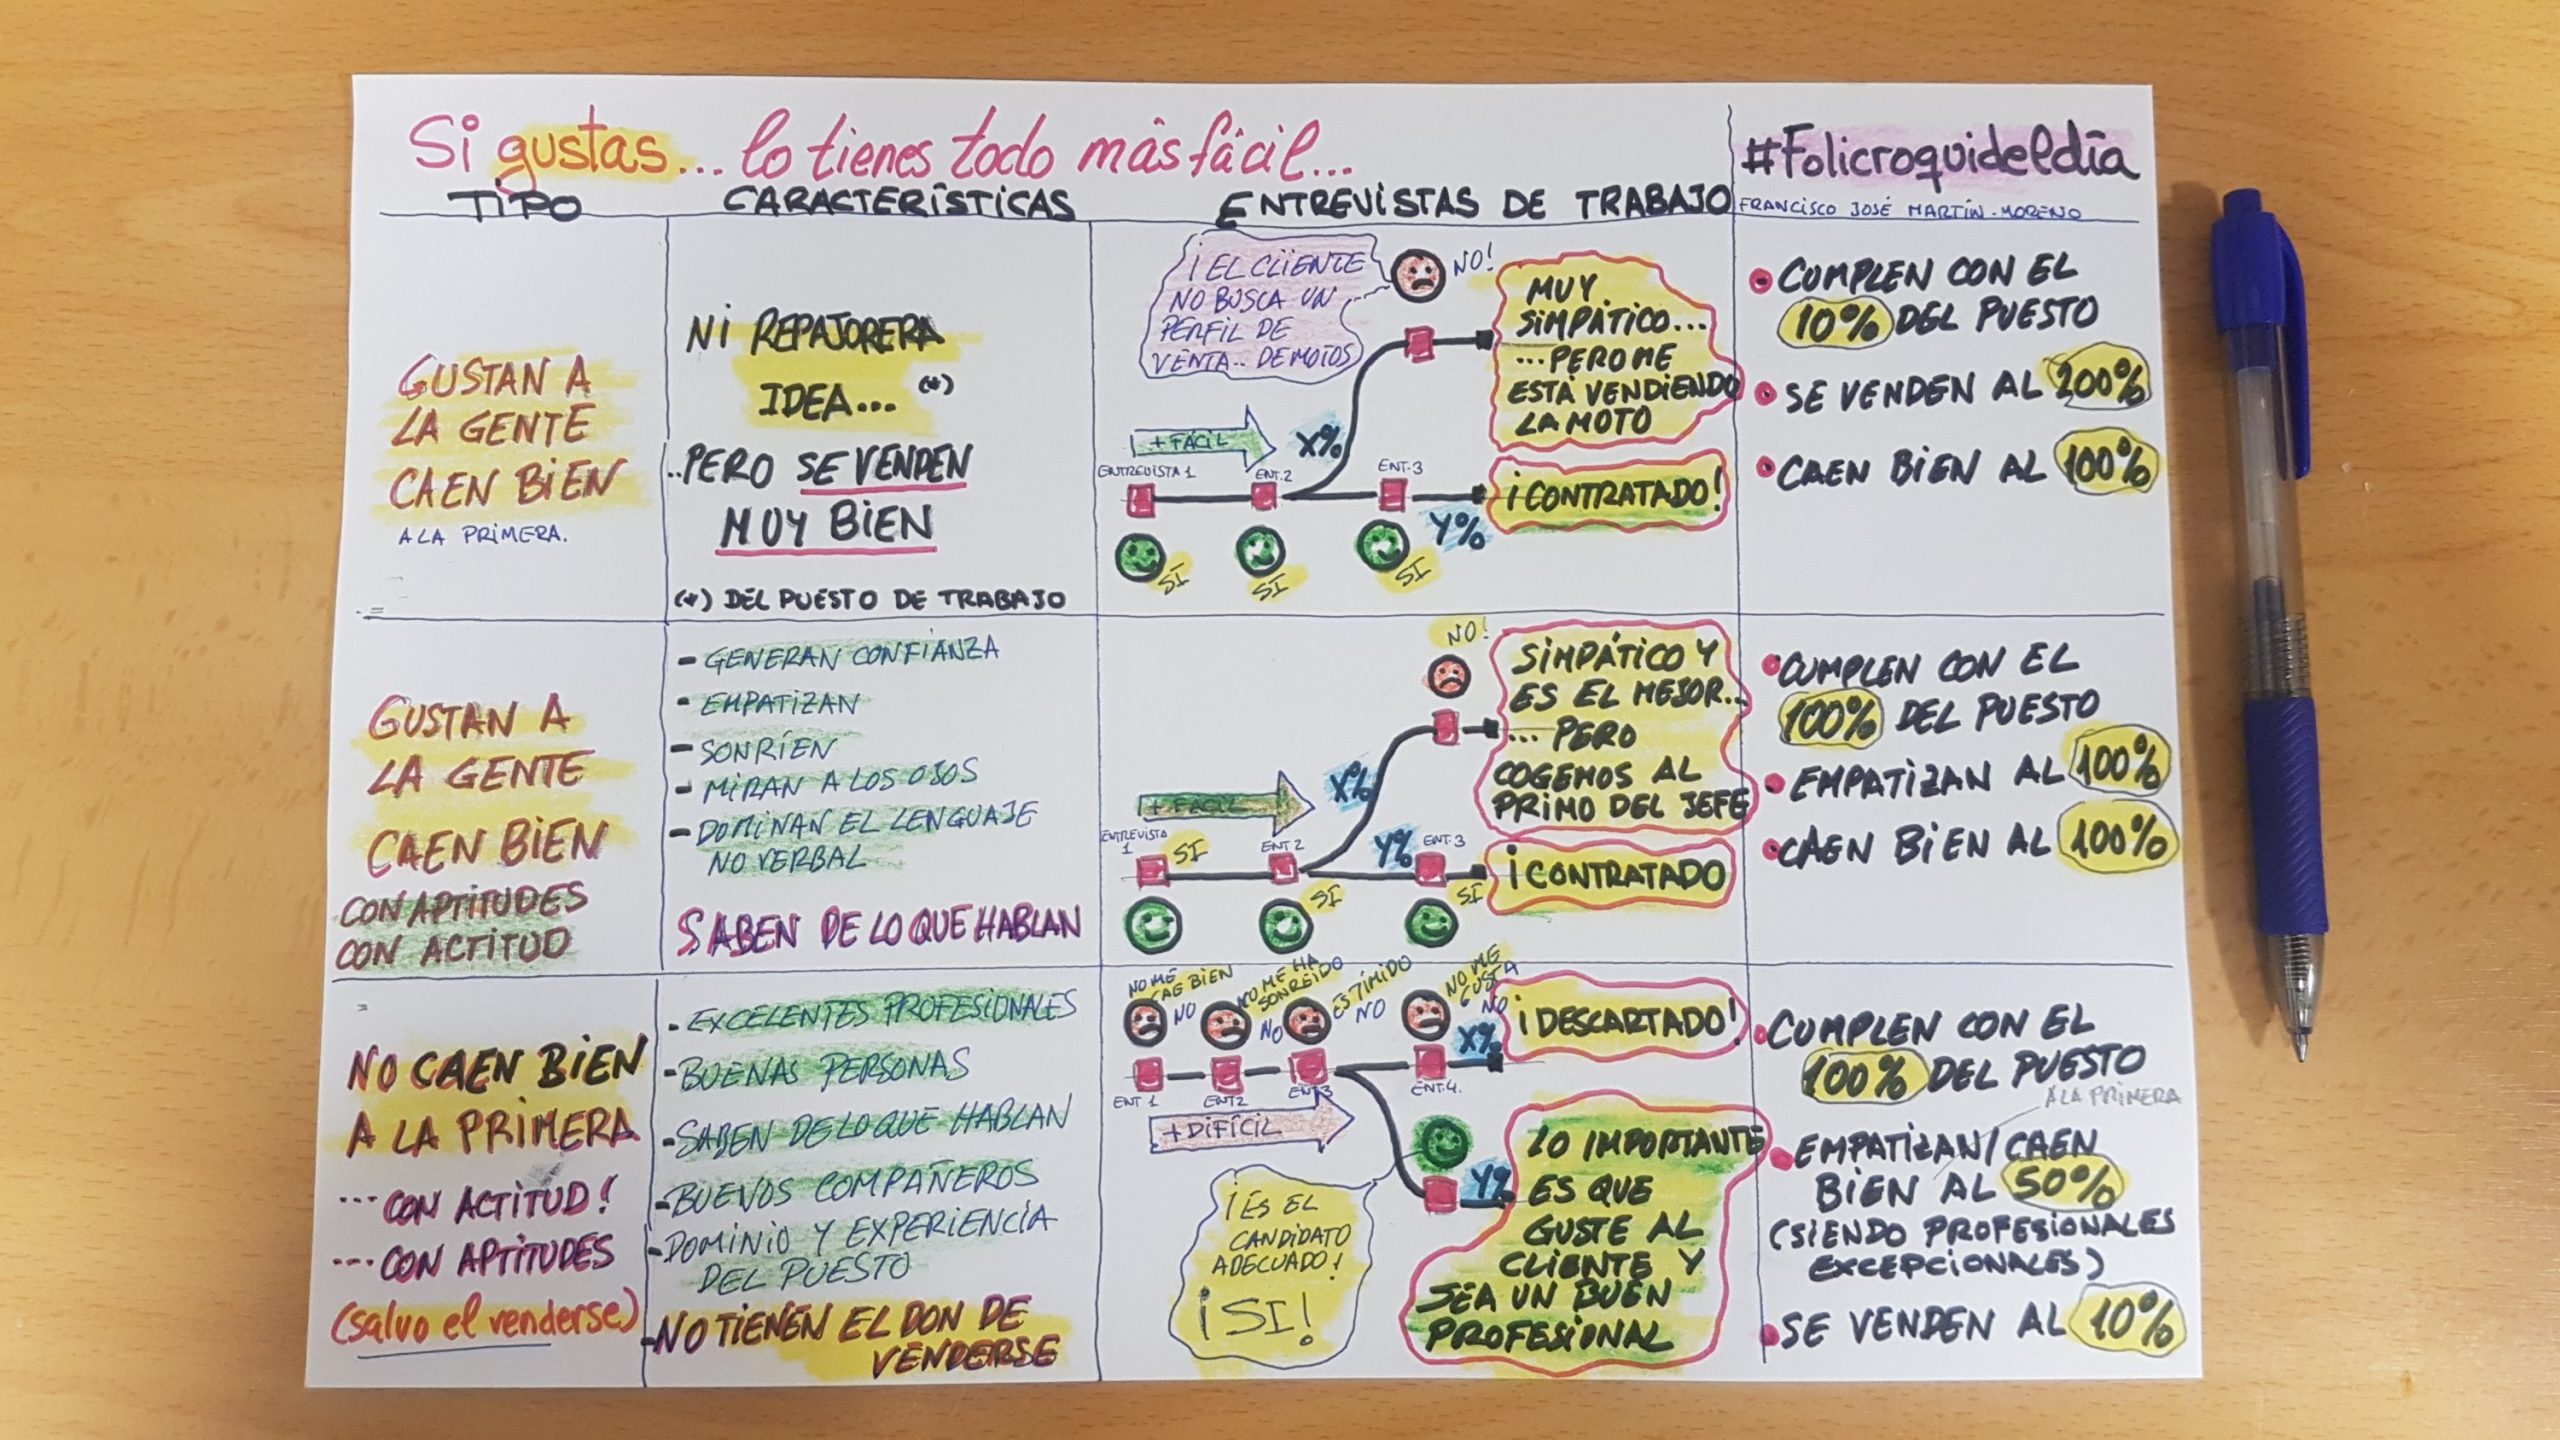 Si gustas... lo tienes todo más fácil...
#Folicroquideldía
TIPO
CARACTERÍSTICAS
ENTREVISTAS DE TRABAJO
FRANCISCO JOSÉ MARTÍN-MORENO
GUSTAN A
LA GENTE
CAEN BIEN
A LA PRIMERA.
NI REPAJORERA
IDEA... (*)
..PERO SE VENDEN
MUY BIEN
(*) DEL PUESTO DE TRABAJO
¡EL CLIENTE
NO BUSCA UN
PERFIL DE
VENTA.. DE MOTOS
NO!
MUY
SIMPÁTICO...
...PERO ME
ESTÁ VENDIENDO
LA MOTO
+ FÁCIL
X%
ENTREVISTA 1
ENT.2
ENT.3
¡CONTRATADO!
Y%
SI
SI
SI
CUMPLEN CON EL
10% DEL PUESTO
SE VENDEN AL 200%
CAEN BIEN AL 100%
GUSTAN A
LA GENTE
CAEN BIEN
CON APTITUDES
CON ACTITUD
- GENERAN CONFIANZA
- EMPATIZAN
- SONRÍEN
- MIRAN A LOS OJOS
- DOMINAN EL LENGUAJE
NO VERBAL
SABEN DE LO QUE HABLAN
NO!
SIMPÁTICO Y
ES EL MEJOR...
... PERO
COGEMOS AL
PRIMO DEL JEFE
+ FÁCIL
X%
ENTREVISTA
1
SI
ENT 2
Y%
ENT.3
SI
SI
¡CONTRATADO
CUMPLEN CON EL
100% DEL PUESTO
EMPATIZAN AL 100%
CAEN BIEN AL 100%
NO CAEN BIEN
A LA PRIMERA
...CON ACTITUD!
...CON APTITUDES
(salvo el venderse)
- EXCELENTES PROFESIONALES
- BUENAS PERSONAS
- SABEN DE LO QUE HABLAN
- BUENOS COMPAÑEROS
- DOMINIO Y EXPERIENCIA
DEL PUESTO
- NO TIENEN EL DON DE
VENDERSE
NO ME
CAE BIEN
NO
NO ME HA
SONREIDO
NO
ES TÍMIDO
NO
NO ME
GUSTA
NO
X%
¡DESCARTADO!
ENT 1
ENT2
ENT3
ENT.4.
+ DIFÍCIL
Y%
¡ES EL
CANDIDATO
ADECUADO!
¡SI!
LO IMPORTANTE
ES QUE
GUSTE AL
CLIENTE Y
SEA UN BUEN
PROFESIONAL
CUMPLEN CON EL
100% DEL PUESTO
A LA PRIMERA
EMPATIZAN/CAEN
BIEN AL 50%
(SIENDO PROFESIONALES
EXCEPCIONALES)
SE VENDEN AL 10%